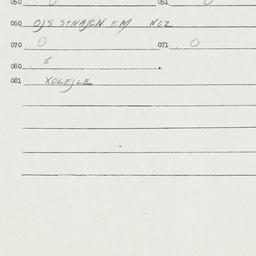 050 0 051 0
060 OJS STNAJCN EM NOZ
070 0 071 0
080 $
081 XOLEJLE